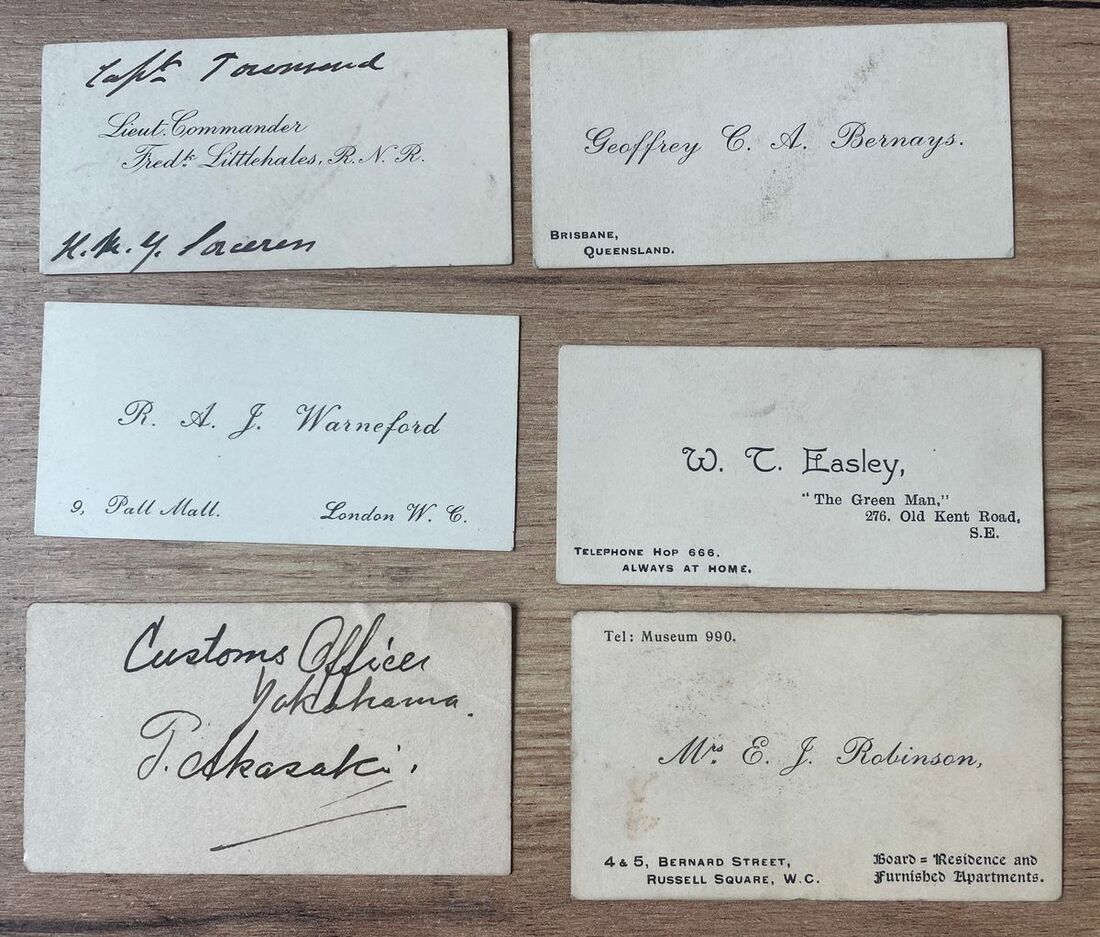 Capt Townsend
Lieut. Commander
Fredk. Littlehales, R.N.R.
H.M.Y. Sorceress
Geoffrey C. A. Bernays.
BRISBANE,
QUEENSLAND.
R. A. J. Warneford
9, Pall Mall. London W. C.
W. T. Easley,
"The Green Man,"
276. Old Kent Road,
S.E.
TELEPHONE HOP 666.
ALWAYS AT HOME.
Customs Officer
Yokohama.
T. Akasaki.
Tel: Museum 990.
Mrs. E. J. Robinson,
4 & 5, BERNARD STREET,
RUSSELL SQUARE, W.C.
Board = Residence and
Furnished Apartments.